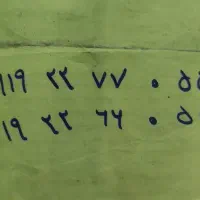 ۱۱۹ ۲۲ ۷۷ ۰ ۵۵
۱۹ ۲۲ ۶۶ ۰ ۵